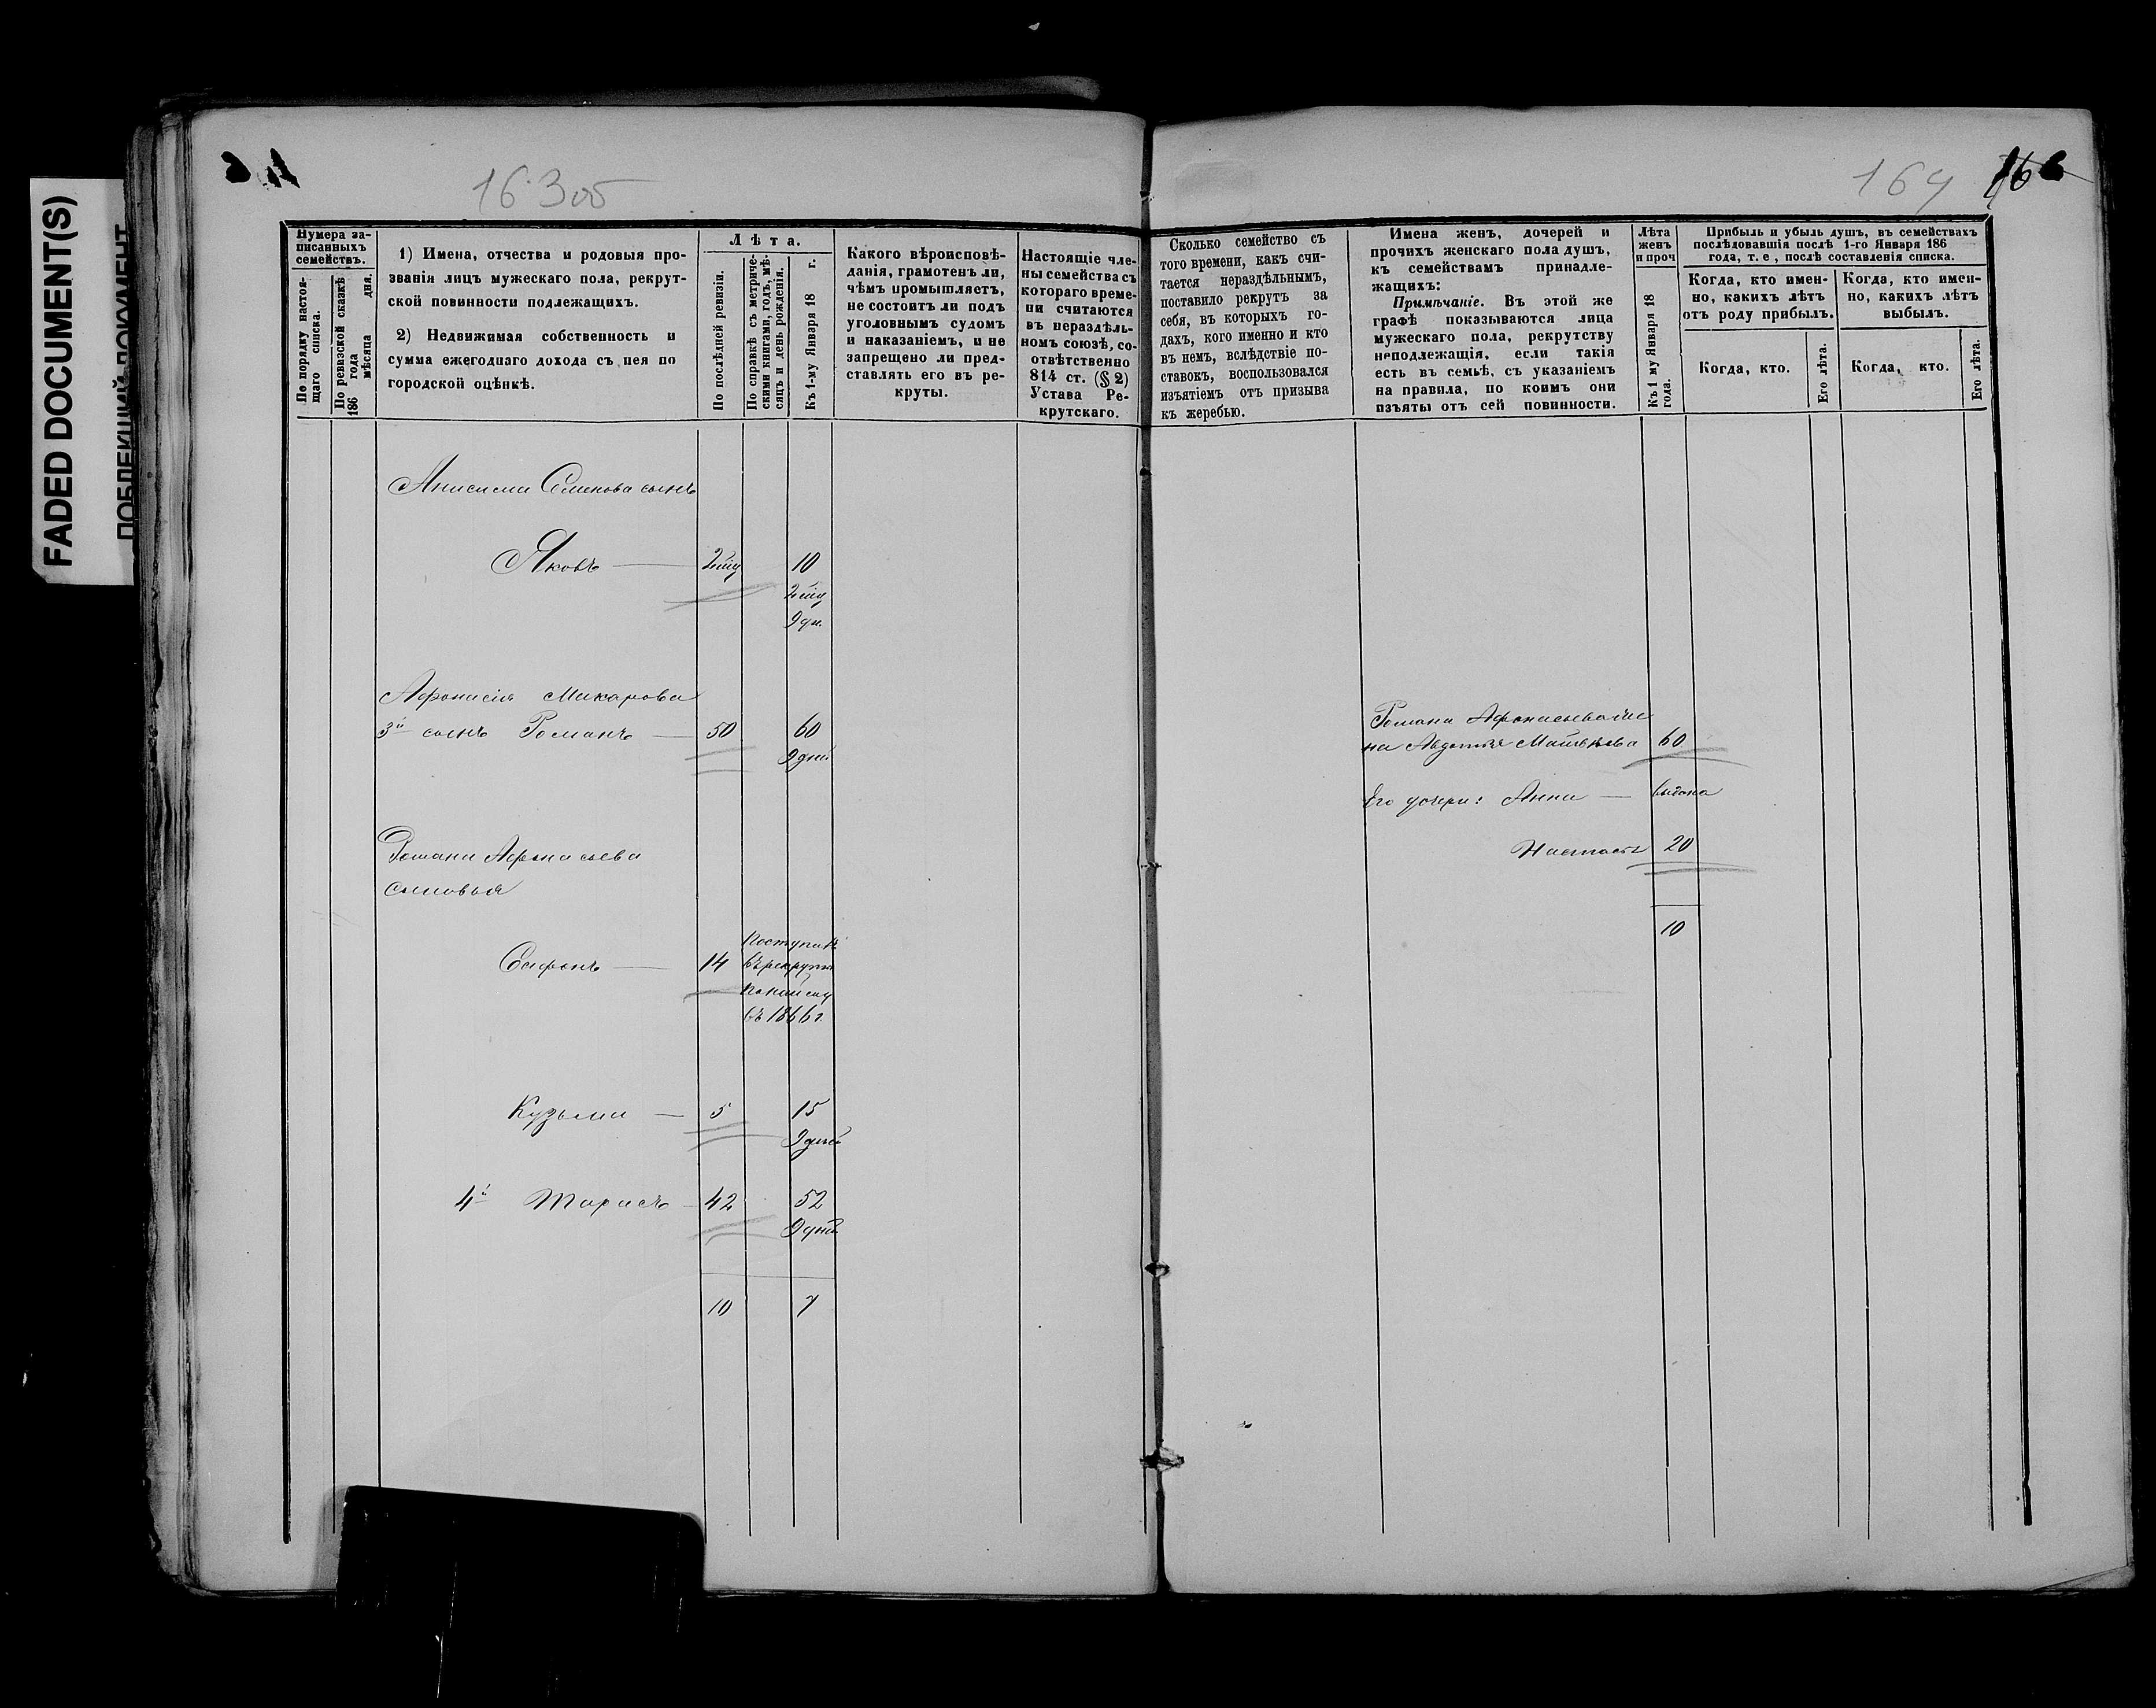 FADED DOCUMENT(S)
163 об
164
Нумера за-
писанныхъ
семействъ.
По порядку настоя-
щаго списка.
По ревизской сказкѣ
186 года мѣсяца дня.
1) Имена, отчества и родовыя про-
званія лицъ мужескаго пола, рекрут-
ской повинности подлежащихъ.
2) Недвижимая собственность и
сумма ежегоднаго дохода съ нея по
городской оцѣнкѣ.
Лѣта.
По послѣдней ревизіи.
По справкѣ съ метриче-
скими книгами, годъ, мѣ-
сяцъ и день рожденія.
Къ 1-му Января 18 г.
Какого вѣроисповѣ-
данія, грамотенъ ли,
чѣмъ промышляетъ,
не состоитъ ли подъ
уголовнымъ судомъ
и наказаніемъ, и не
запрещено ли пред-
ставлять его въ ре-
круты.
Настоящіе чле-
ны семейства съ
котораго време-
ни считаются
въ нераздѣль-
номъ союзѣ, со-
отвѣтственно
814 ст. (§ 2)
Устава Ре-
крутскаго.
Сколько семейство съ
того времени, какъ счи-
тается нераздѣльнымъ,
поставило рекрутъ за
себя, въ которыхъ го-
дахъ, кого именно и кто
въ немъ, вслѣдствіе по-
ставокъ, воспользовался
изъятіемъ отъ призыва
къ жеребью.
Имена женъ, дочерей и
прочихъ женскаго пола душъ,
къ семействамъ принадле-
жащихъ:
Примѣчаніе. Въ этой же
графѣ показываются лица
мужескаго пола, рекрутству
неподлежащія, если такія
есть въ семьѣ, съ указаніемъ
на правила, по коимъ они
изъяты отъ сей повинности.
Лѣта
женъ
и проч
Къ 1 му Января 18
года.
Прибыль и убыль душъ, въ семействахъ
послѣдовавшія послѣ 1-го Января 186
года, т. е, послѣ составленія списка.
Когда, кто имен-
но, какихъ лѣтъ
отъ роду прибылъ.
Когда, кто имен-
но, какихъ лѣтъ
выбылъ.
Когда, кто.
Его лѣта.
Когда, кто.
Его лѣта.
Анисима Семенова сынъ
Яковъ — 10
Афонасія Макарова
3й сынъ Романъ — 50 60
9 дней
Романа Афонасьева
сыновья
Сафонъ — 14
Поступилъ
въ рекруты
въ 1866 г.
Кузьма — 5 15
9 дней
4й Тарасъ 42 52
9 дней
10 7
Романа Афонасьева же
на Авдотья 60
Его дочери: Анна — выдана
Настасья 20
10